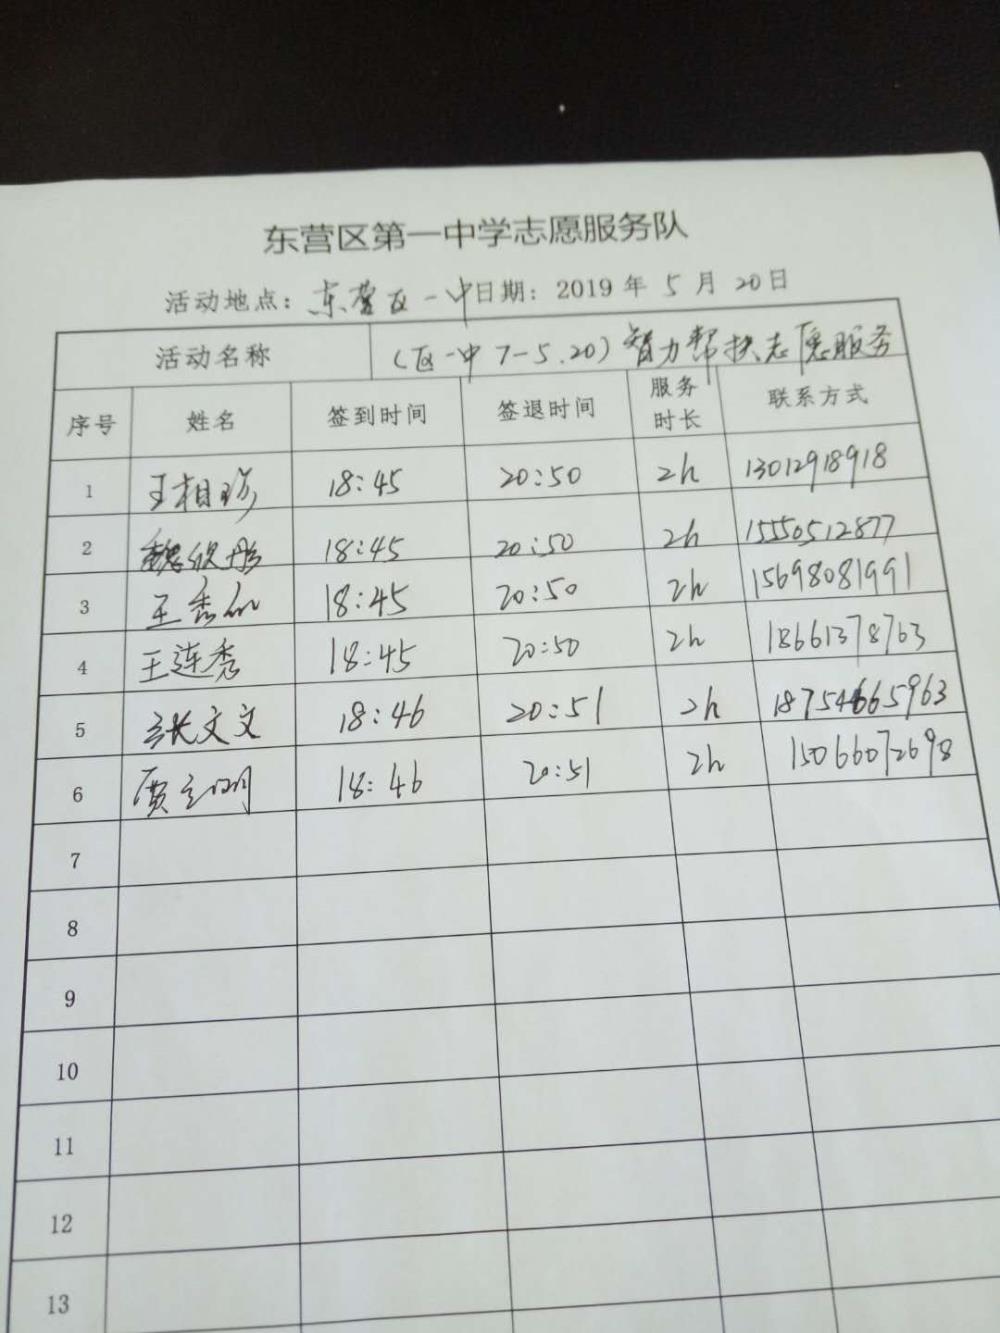 东营区第一中学志愿服务队
活动地点: 东营区一中 日期: 2019 年 5 月 20 日
活动名称 (区一中7-5.20)智力帮扶志愿服务
序号 姓名 签到时间 签退时间 服务时长 联系方式
1 王相 18:45 20:50 2h 13012918918
2 魏 18:45 20:50 2h 15550512877
3 王秀 18:45 20:50 2h 15698081991
4 王连秀 18:45 20:50 2h 18661378763
5 张文文 18:46 20:51 2h 18754665963
6 贾立明 18:46 20:51 2h 15066072698
7
8
9
10
11
12
13